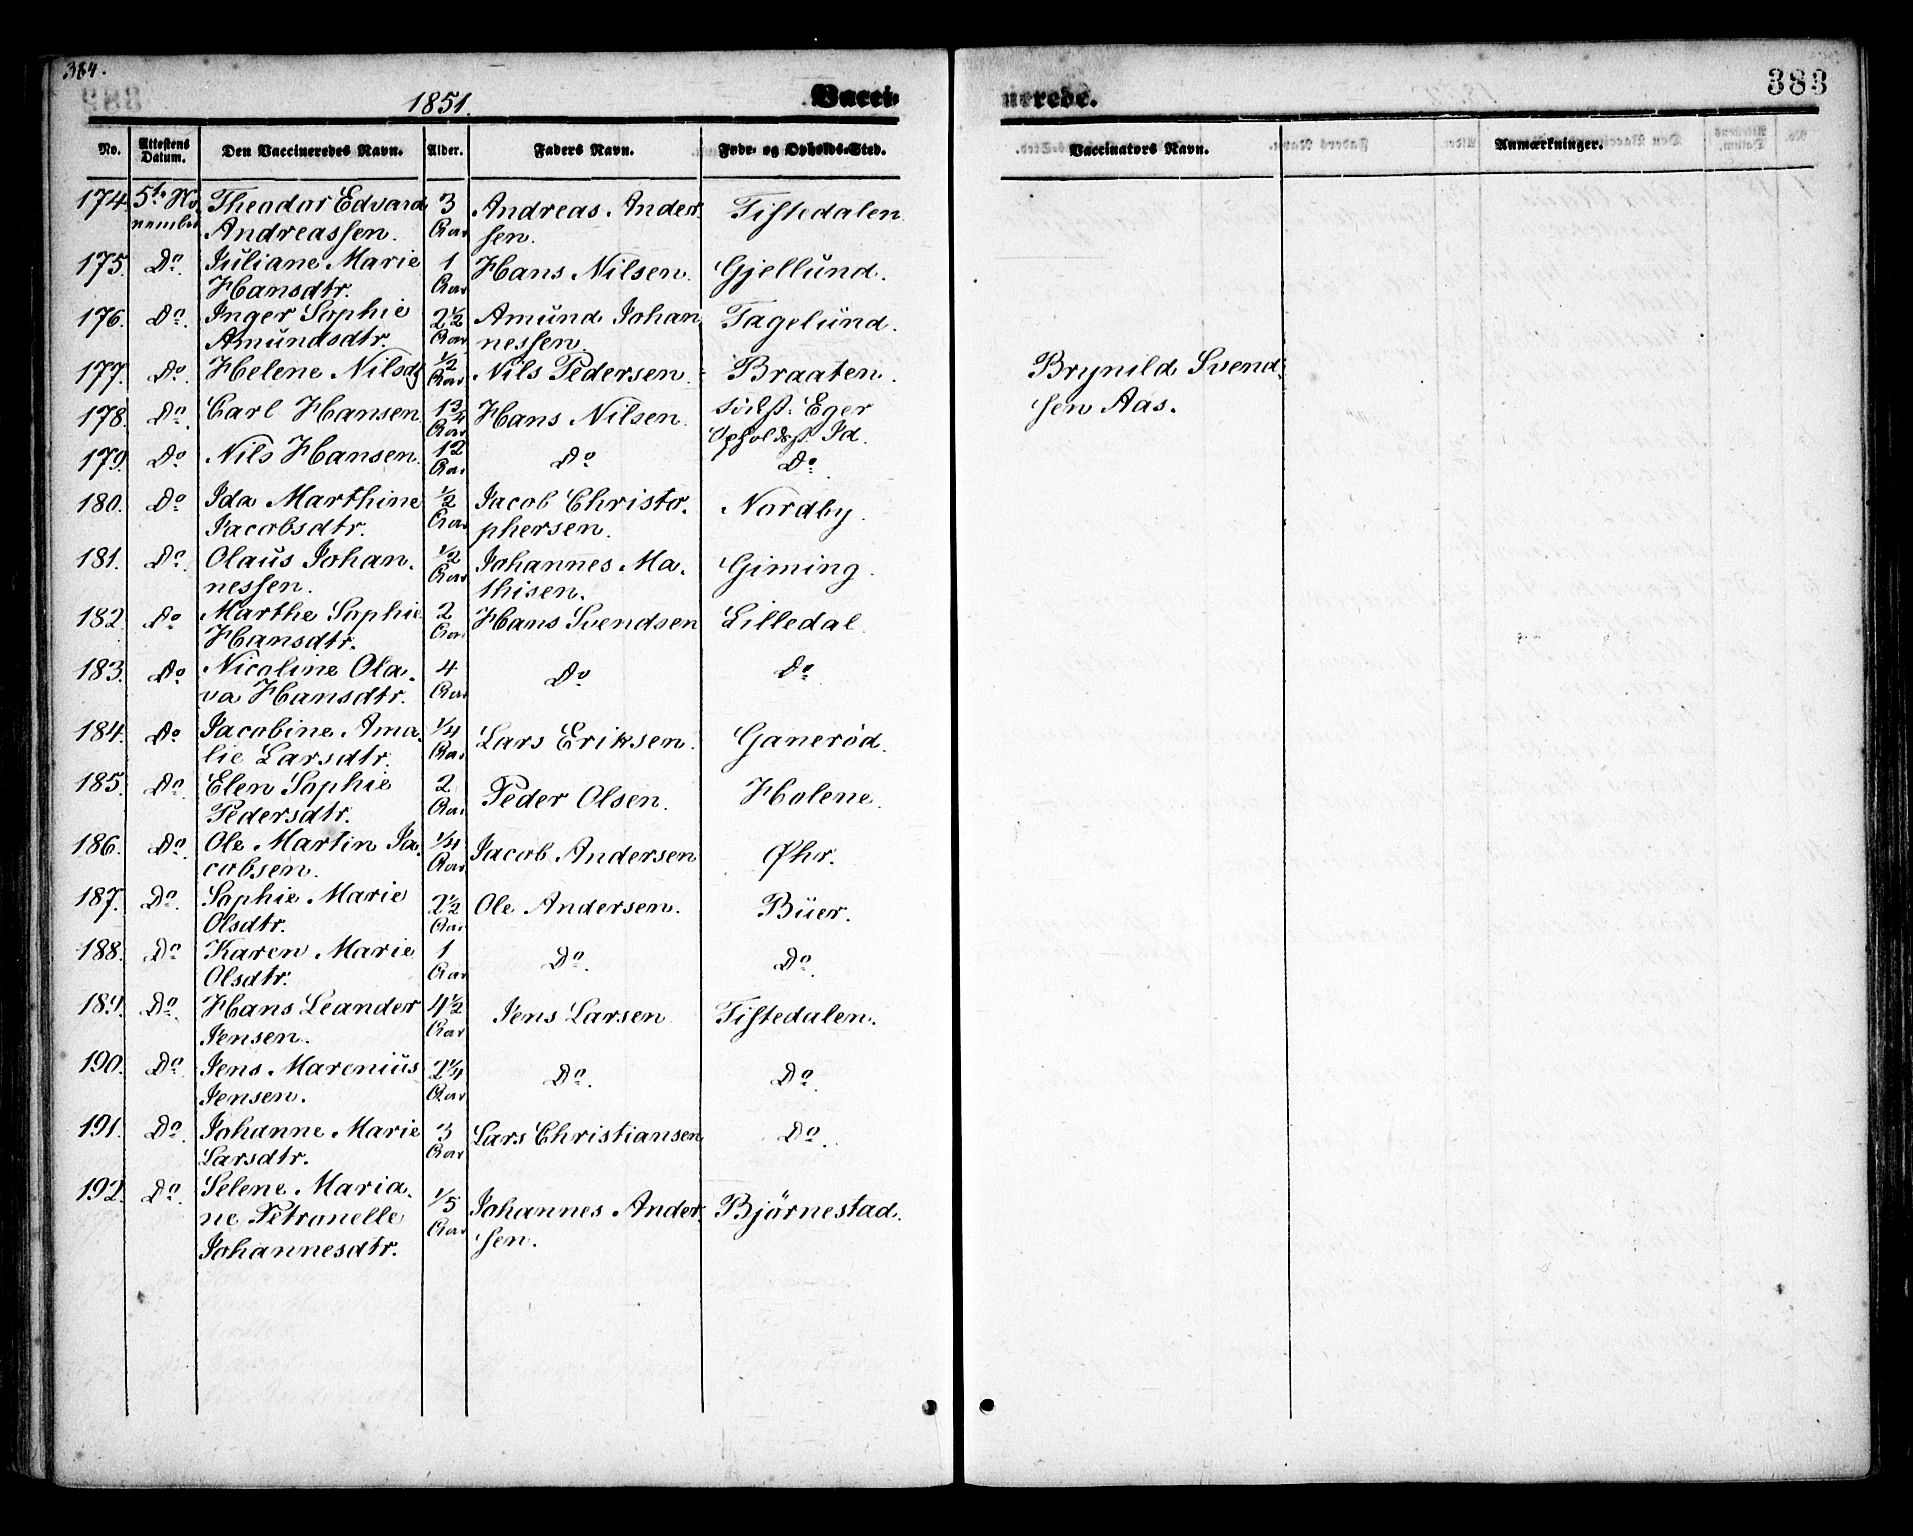 384.
1851.
Vacci-
No. Attestens Datum. Den Vaccineredes Navn. Alder. Faders Navn. Føde- og Opholds-Sted.
174. 5te No- Theodor Edvard 3 Andreas Ander- Tistedalen.
vember Andreassen. Aar sen.
175. Do. Juliane Marie 1 Hans Nilsen. Gjellund.
Hansdtr. Aar
176. Do. Inger Sophie 2½ Amund Johan- Fagelund.
Amundsdtr. Aar nessen.
177. Do. Helene Nilsd. ½ Nils Pedersen. Braaten.
Aar
178. Do. Carl Hansen 1¾ Hans Nilsen. Födest: Eger
Aar Opholdsst. Id.
179. Do Nils Hansen. 12 Do Do
Aar
180. Do Ida Marthine ½ Jacob Christo- Nordby.
Jacobsdtr. Aar phersen.
181. Do. Olaus Johan- ½ Johannes Ma- Giming.
nessen. Aar thisen.
182. Do Marthe Sophie 2 Hans Svendsen Lilledal.
Hansdtr. Aar
183. Do Nicoline Ola- 4 Do Do
va Hansdtr. Aar
184. Do Jacobine Ama- ¼ Lars Eriksen. Ganeröd.
lie Larsdtr. Aar
185. Do. Elen Sophie 2 Peder Olsen. Holene.
Pedersdtr. Aar
186. Do. Ole Martin Ja- ¼ Jacob Andersen Øhr.
cobsen. Aar
187. Do. Sophie Marie 2½ Ole Andersen. Buer.
Olsdtr. Aar
188. Do Karen Marie 1 Do. Do.
Olsdtr. Aar
189. Do. Hans Leander 4½ Jens Larsen Tistedalen.
Jensen. Aar
190. Do. Jens Marenius 2¼ Do. Do.
Jensen. Aar
191. Do. Johanne Marie 3 Lars Christiansen Do.
Larsdtr. Aar
192. Do. Selene Maria- 1/5 Johannes Ander- Bjørnestad.
ne Petronelle Aar sen.
Johannesdtr.
383
nerede.
Vaccinators Navn. Anmærkninger.
Brynild Svend-
sen Aas.